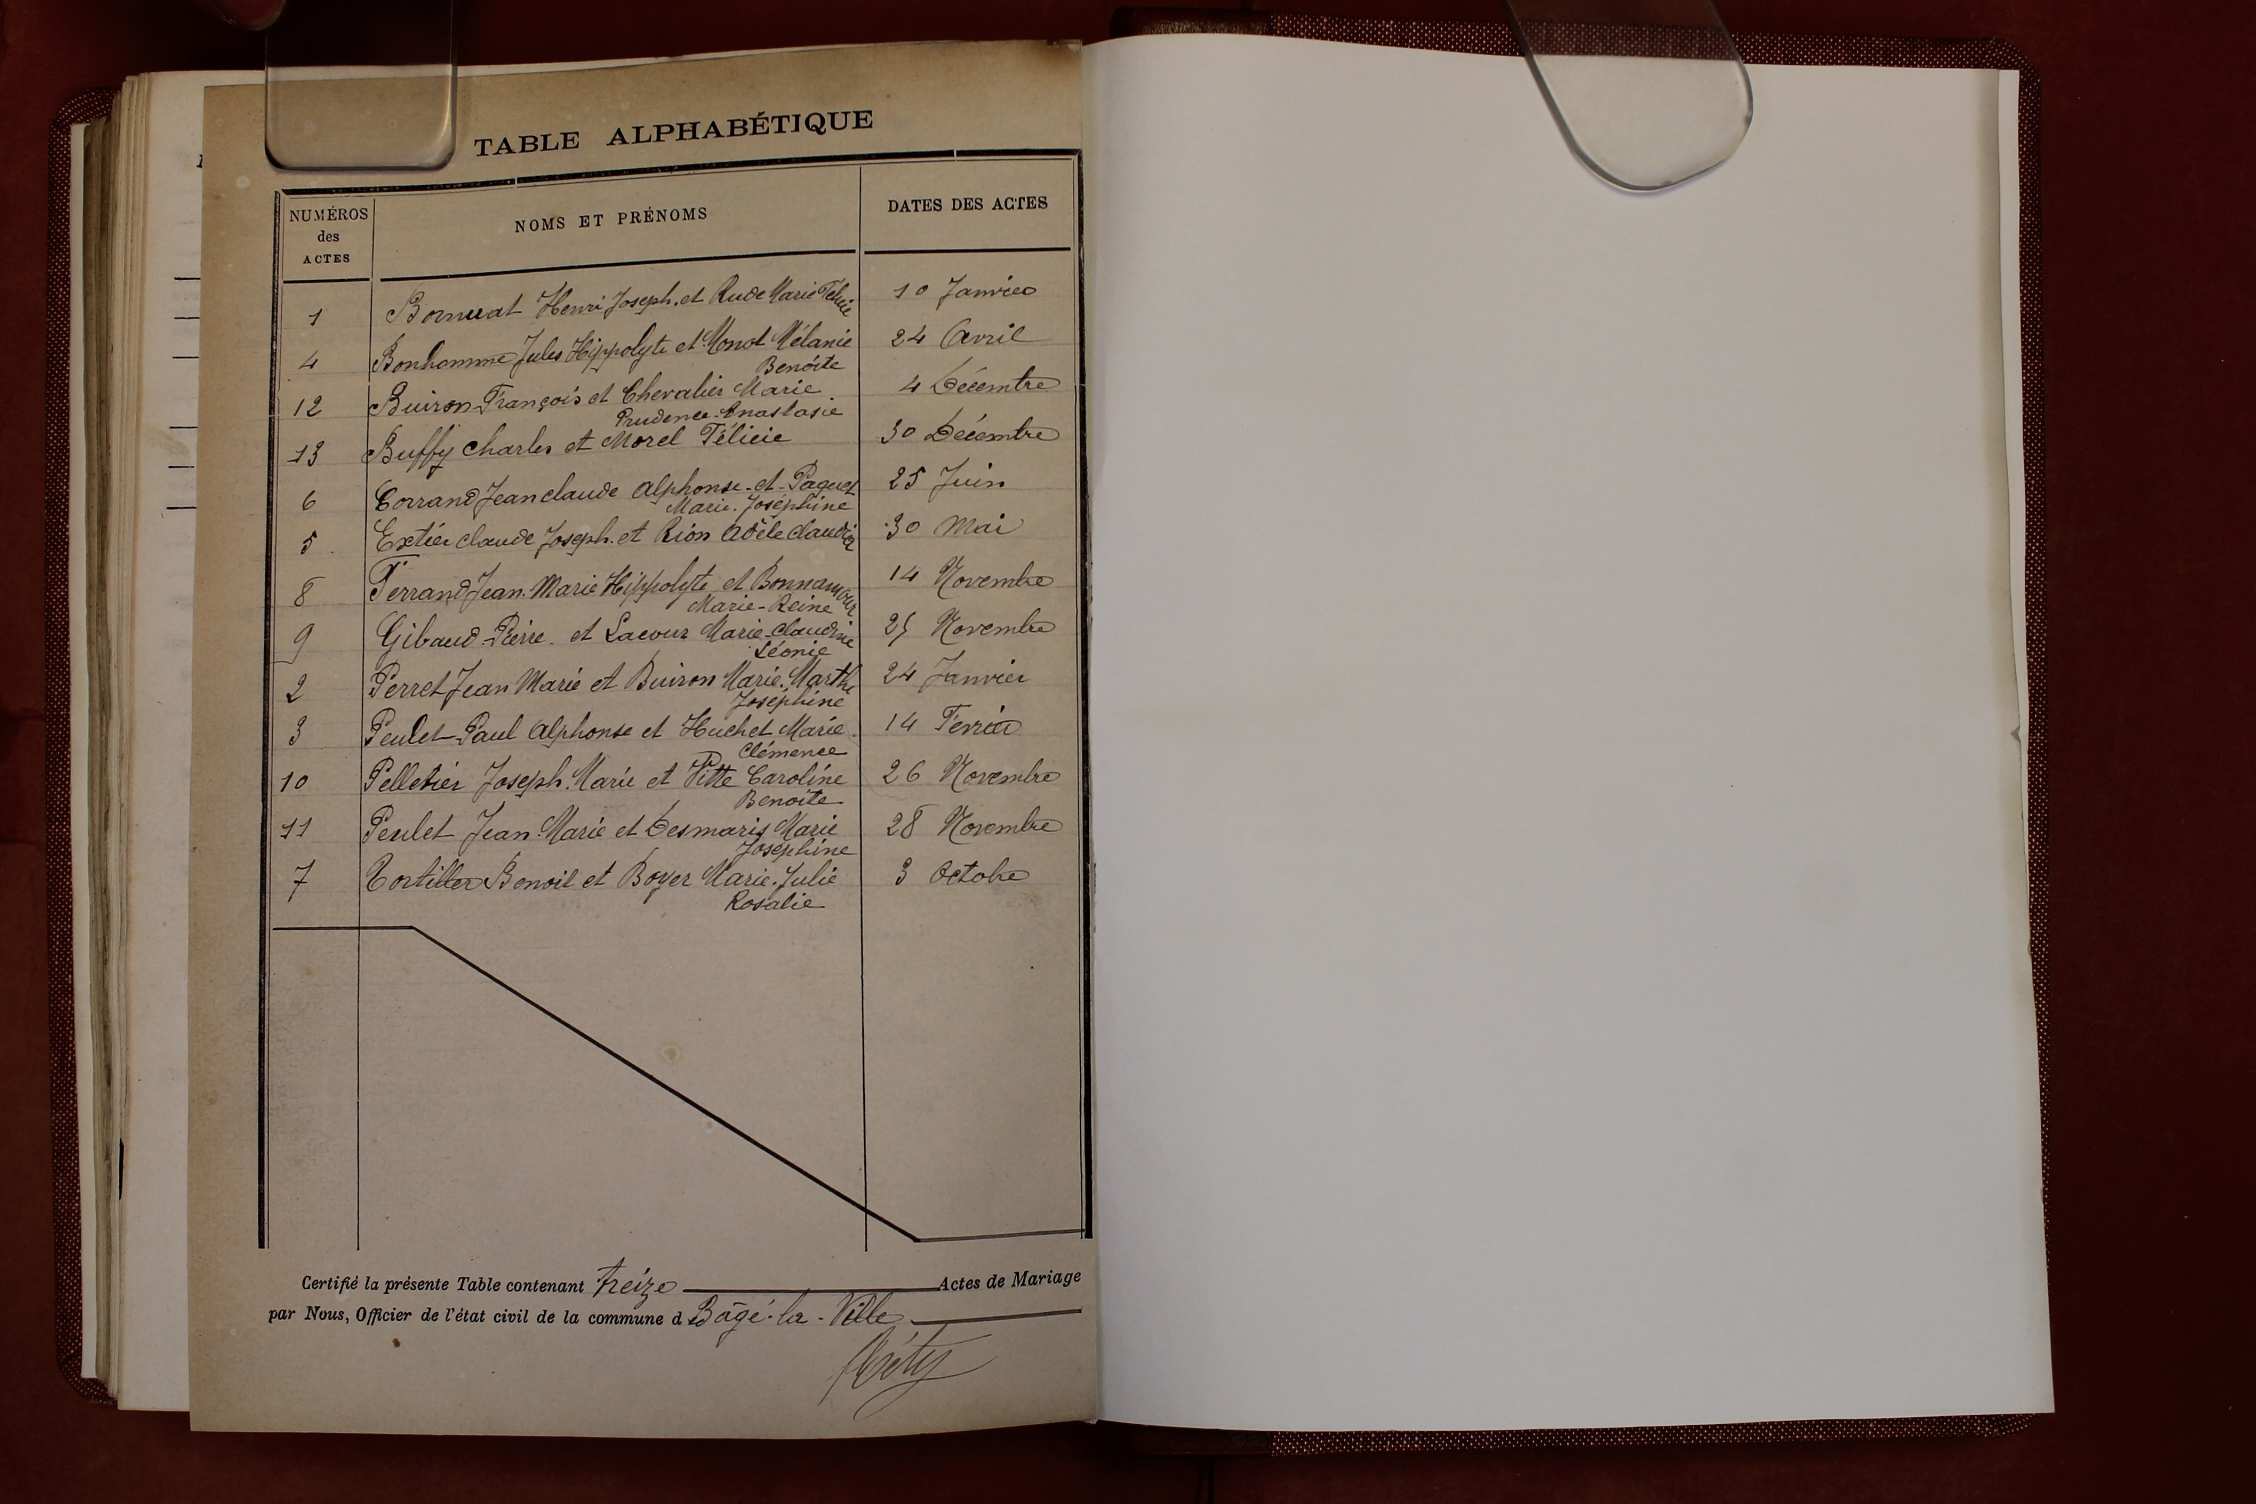 TABLE ALPHABÉTIQUE
NUMÉROS des ACTES NOMS ET PRÉNOMS DATES DES ACTES
1 Bornuat Henri Joseph et Rude Marie 10 Janvier
4 Bonhomme Jules Hippolyte et Monot Mélanie 24 Avril
Benoîte
12 Buiron François et Chevalier Marie 4 Décembre
Prudence-Anastasie
13 Buffy Charles et Morel Félicie 30 Décembre
6 Corrand Jean claude Alphonse et Paquet 25 Juin
Marie Joséphine
5 Extier claude Joseph et Rion Adèle claudia 30 Mai
8 Ferrand Jean Marie Hippolyte et Bonnamour 14 Novembre
Marie-Reine
9 Gibaud Pierre et Lacour Marie-claudine 25 Novembre
Léonie
2 Perret Jean Marie et Buiron Marie Marthe 24 Janvier
Joséphine
3 Peulet Paul Alphonse et Huchet Marie 14 Février
Clémence
10 Pelletier Joseph Marie et Pitte Caroline 26 Novembre
Benoîte
11 Peulet Jean Marie et Desmaris Marie 28 Novembre
Joséphine
7 Tortiller Benoit et Boyer Marie Julie 3 Octobre
Rosalie
Certifié la présente Table contenant treize Actes de Mariage
par Nous, Officier de l'état civil de la commune d Bâgé-la-Ville